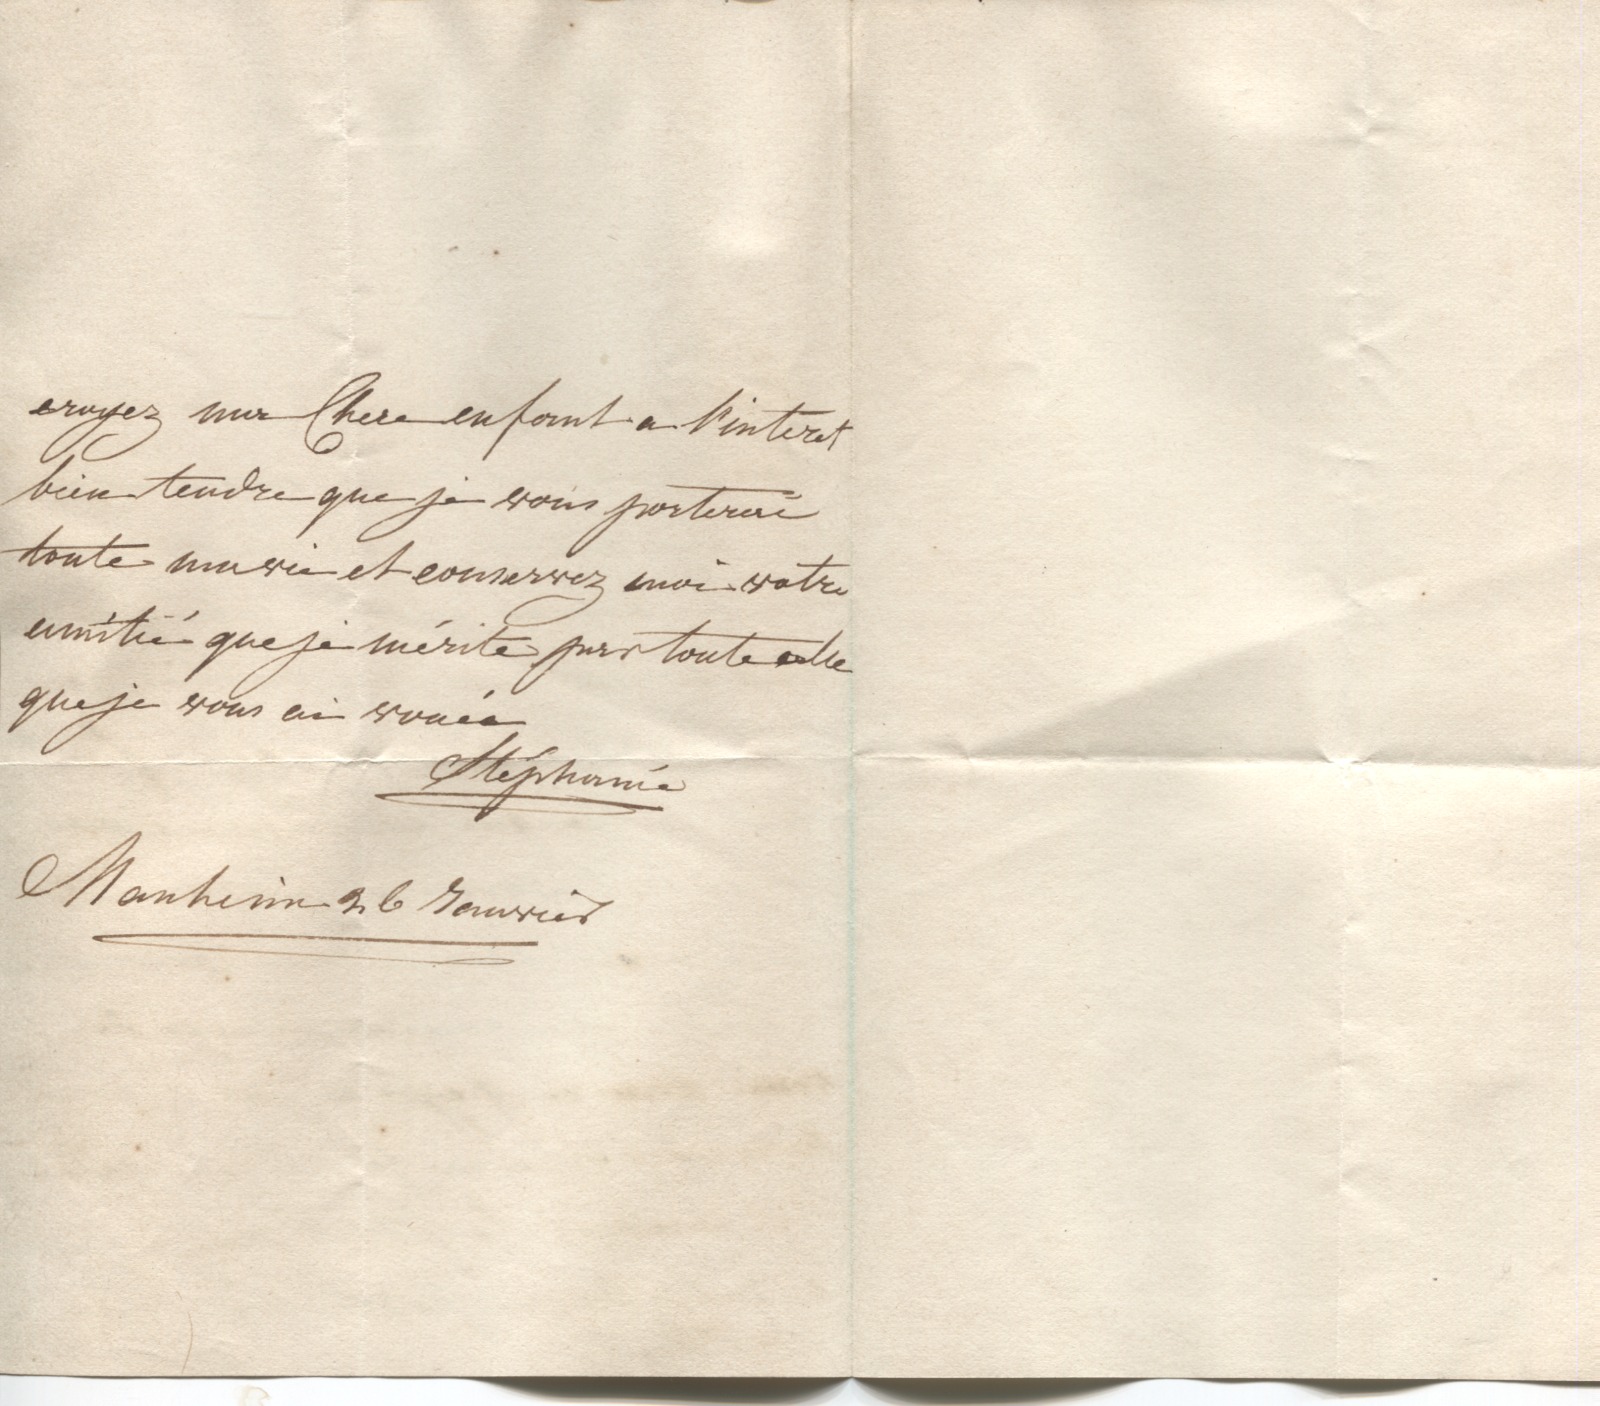 croyez ma Chere enfant a l'interet
bien tendre que je vous porterai
toute ma vie et conservez moi votre
amitié que je mérite par toute celle
que je vous ai vouée
Stéphanie
Manheim 26 Janvier